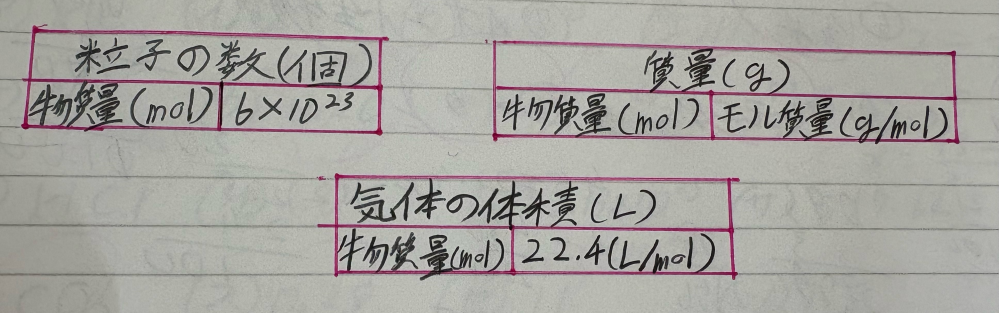 粒子の数(個)
物質量(mol) 6×10²³
質量(g)
物質量(mol) モル質量(g/mol)
気体の体積(L)
物質量(mol) 22.4(L/mol)